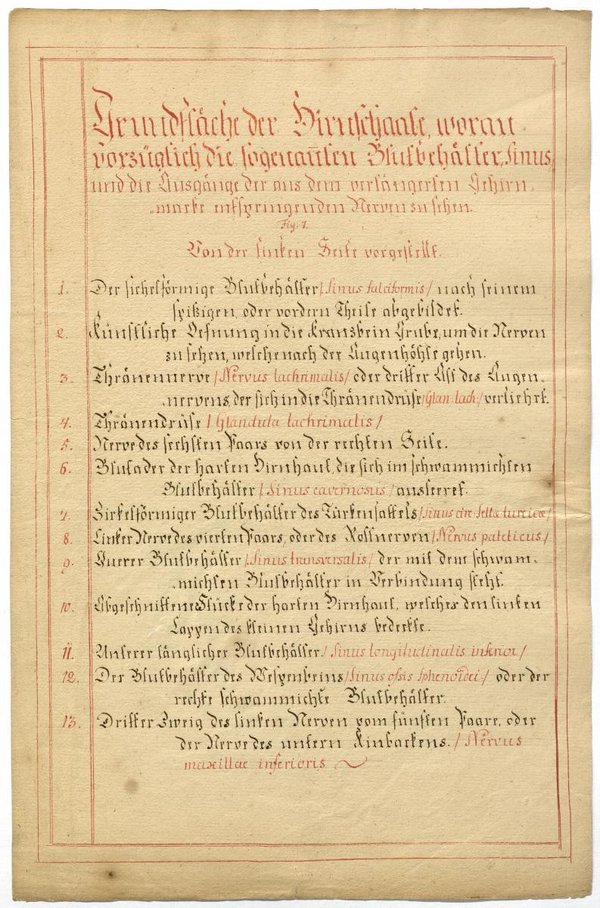 Grundfläche der Hirnschaale, woran
vorzüglich die sogenañten Blutbehälter, Sinus,
und die Ausgänge der aus dem verlängerten Gehirn„
„marke entspringenden Nerven zu sehen.
Fig: 1.
Von der linken Seite vorgestellt.
1. Der sichelförmige Blutbehälter /Sinus falciformis/ nach seinem
spizigen, oder vordern Theile abgebildet.
2. Künstliche Oefnung in die Kranzbein Grube, um die Nerven
zu sehen, welche nach der Augenhöhle gehen.
3. Thränennerve /Nervus lachrimalis/ oder dritter Ast des Augen„
„nervens, der sich in die Thränendrüse /Glan: lach:/ verliehrt.
4. Thränendrüse /Glandula lachrimalis/
5. Nerve des sechsten Paars von der rechten Seite.
6. Blutader der harten Hirnhaut, die sich im schwammichten
Blutbehälter /Sinus cavernosus/ ausleeret.
7. Zirkelförmiger Blutbehälter des Türkensattels /Sinus circ: sellæ turcicæ/
8. Linker Nerve des vierten Paars, oder des Rollnerven /Nervus pateticus/
9. Querer Blutbehälter /Sinus transversalis/ der mit dem schwam„
„michten Blutbehälter in Verbindung steht.
10. Abgeschnittene Stücke der harten Hirnhaut, welches den linken
Lappen des kleinen Gehirns bedeckte.
11. Unterer länglicher Blutbehälter /Sinus longitudinalis inferior/
12. Der Blutbehälter des Wespenbeins /Sinus ossis sphenoidei/ oder der
rechte schwammichte Blutbehälter.
13. Dritter Zweig des linken Nerven vom fünften Paare, oder
der Nerve des untern Kinbackens. /Nervus
maxillae inferioris